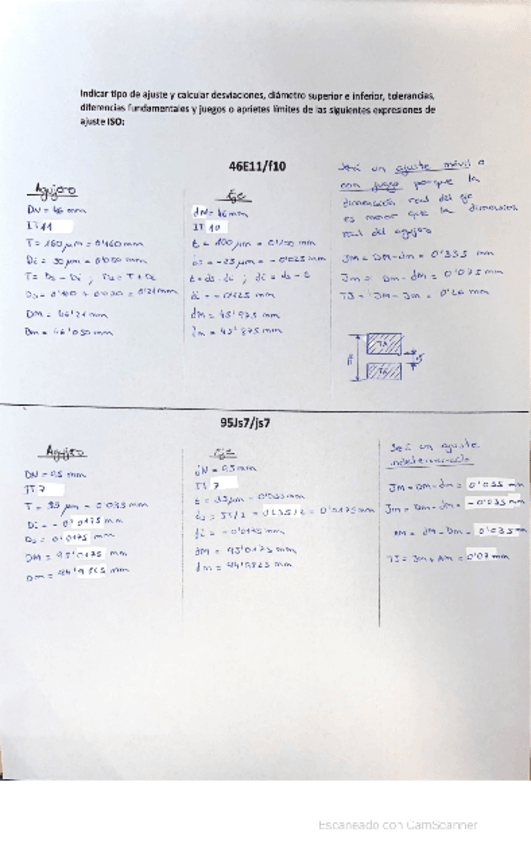 Indicar tipo de ajuste y calcular desviaciones, diámetro superior e inferior, tolerancias,
diferencias fundamentales y juegos o aprietes límites de las siguientes expresiones de
ajuste ISO:
46E11/f10
Agujero
DN = 46 mm
IT 11
T = 160 μm = 0'160 mm
Di = 50 μm = 0'050 mm
T = Ds - Di ; Ds = T + Di
DM = 46'21 mm
Dm = 46'050 mm
Eje
dN = 46 mm
IT 10
t = 100 μm = 0'100 mm
ds = -25 μm = -0'025 mm
t = ds - di ; di = ds - t
di = -0'125 mm
dM = 45'975 mm
dm = 45'875 mm
Será un ajuste móvil o
con juego porque la
dimensión real del eje
es menor que la dimensión
real del agujero
JM = DM - dm = 0'335 mm
Jm = Dm - dM = 0'075 mm
TJ = JM - Jm = 0'26 mm
95Js7/js7
Agujero
DN = 95 mm
IT 7
T = 35 μm = 0'035 mm
Di = - 0'0175 mm
Ds = 0'0175 mm
DM = 95'0175 mm
Dm = 94'9825 mm
Eje
dN = 95 mm
IT 7
t = 35 μm = 0'035 mm
ds = IT/2 = 0'035/2 = 0'0175 mm
di = - 0'0175 mm
dM = 95'0175 mm
dm = 94'9825 mm
Será un ajuste
indeterminado
JM = DM - dm = 0'035 mm
Jm = Dm - dM = -0'035 mm
AM = dM - Dm = 0'035 mm
TJ = JM + AM = 0'07 mm
Escaneado con CamScanner